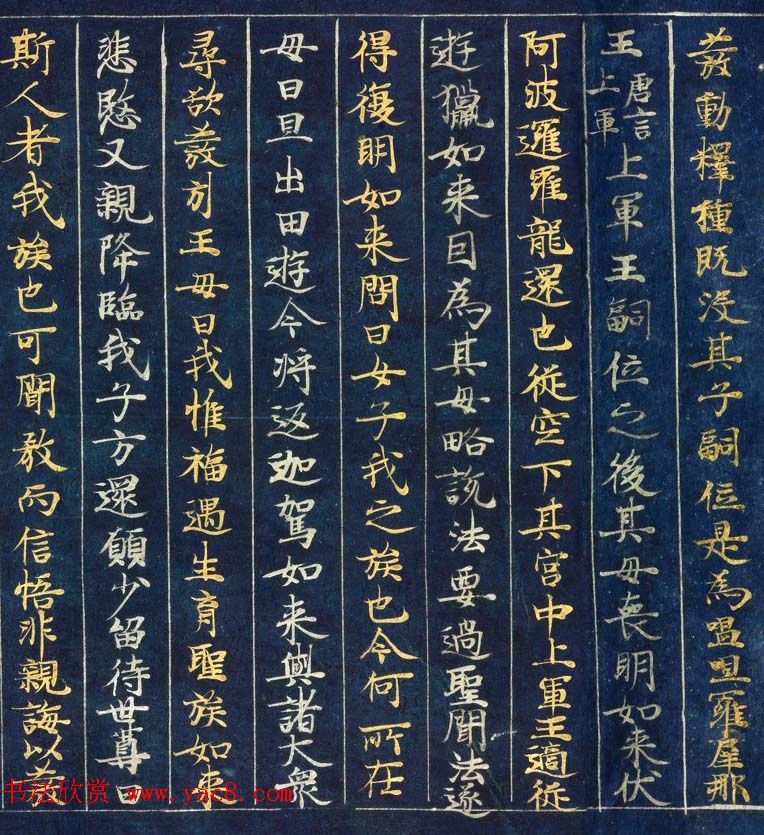 發動釋種既没其子嗣位是為嗢呾羅犀那
王唐言上軍上軍王嗣位之後其母喪明如来伏
阿波邏羅龍還也從空下其宫中上軍王適從
遊獵如来因為其母略説法要遇聖聞法遂
得復明如来問曰女子我之族也今何所在
母曰旦出田遊今將返迦駕如来與諸大衆
尋欲發引王母曰我惟福遇生育聖族如来
悲愍又親降臨我子方還願少留待世尊曰
斯人者我族也可聞教而信悟非親誨以發
书法欣赏 www.yac8.com